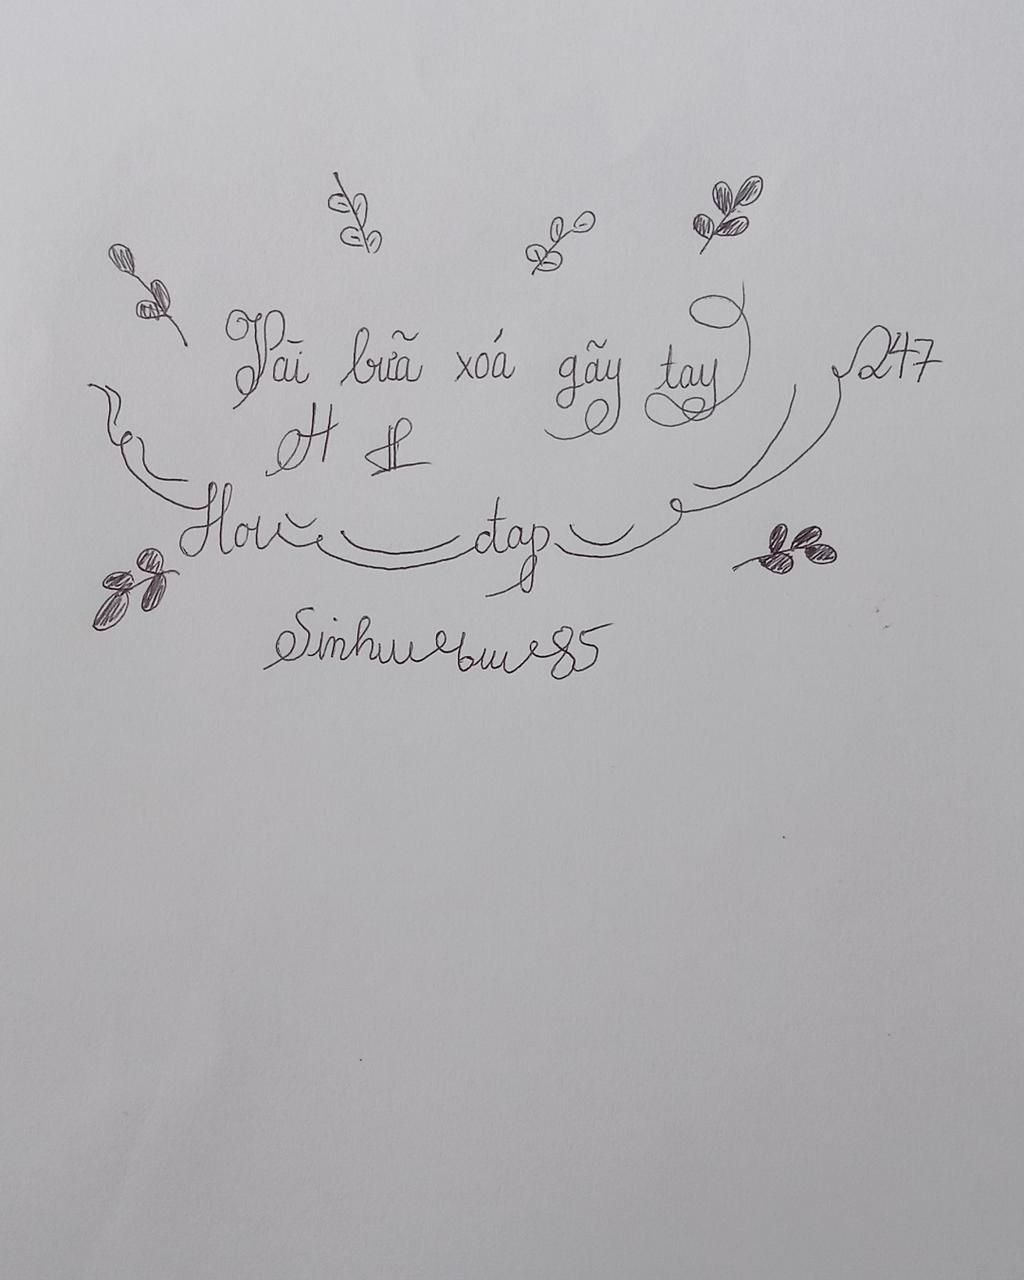 Vài bữa xoá gãy tay 247
H L
Hou đap
Sinhuebue85